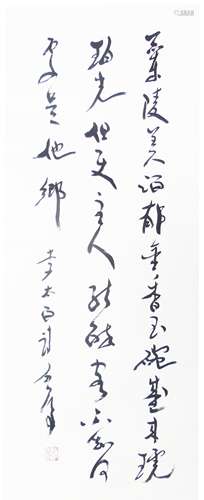 蘭陵美酒郁金香玉碗盛来琥
珀光但使主人能醉客不知何
處是他鄉 李太白詩